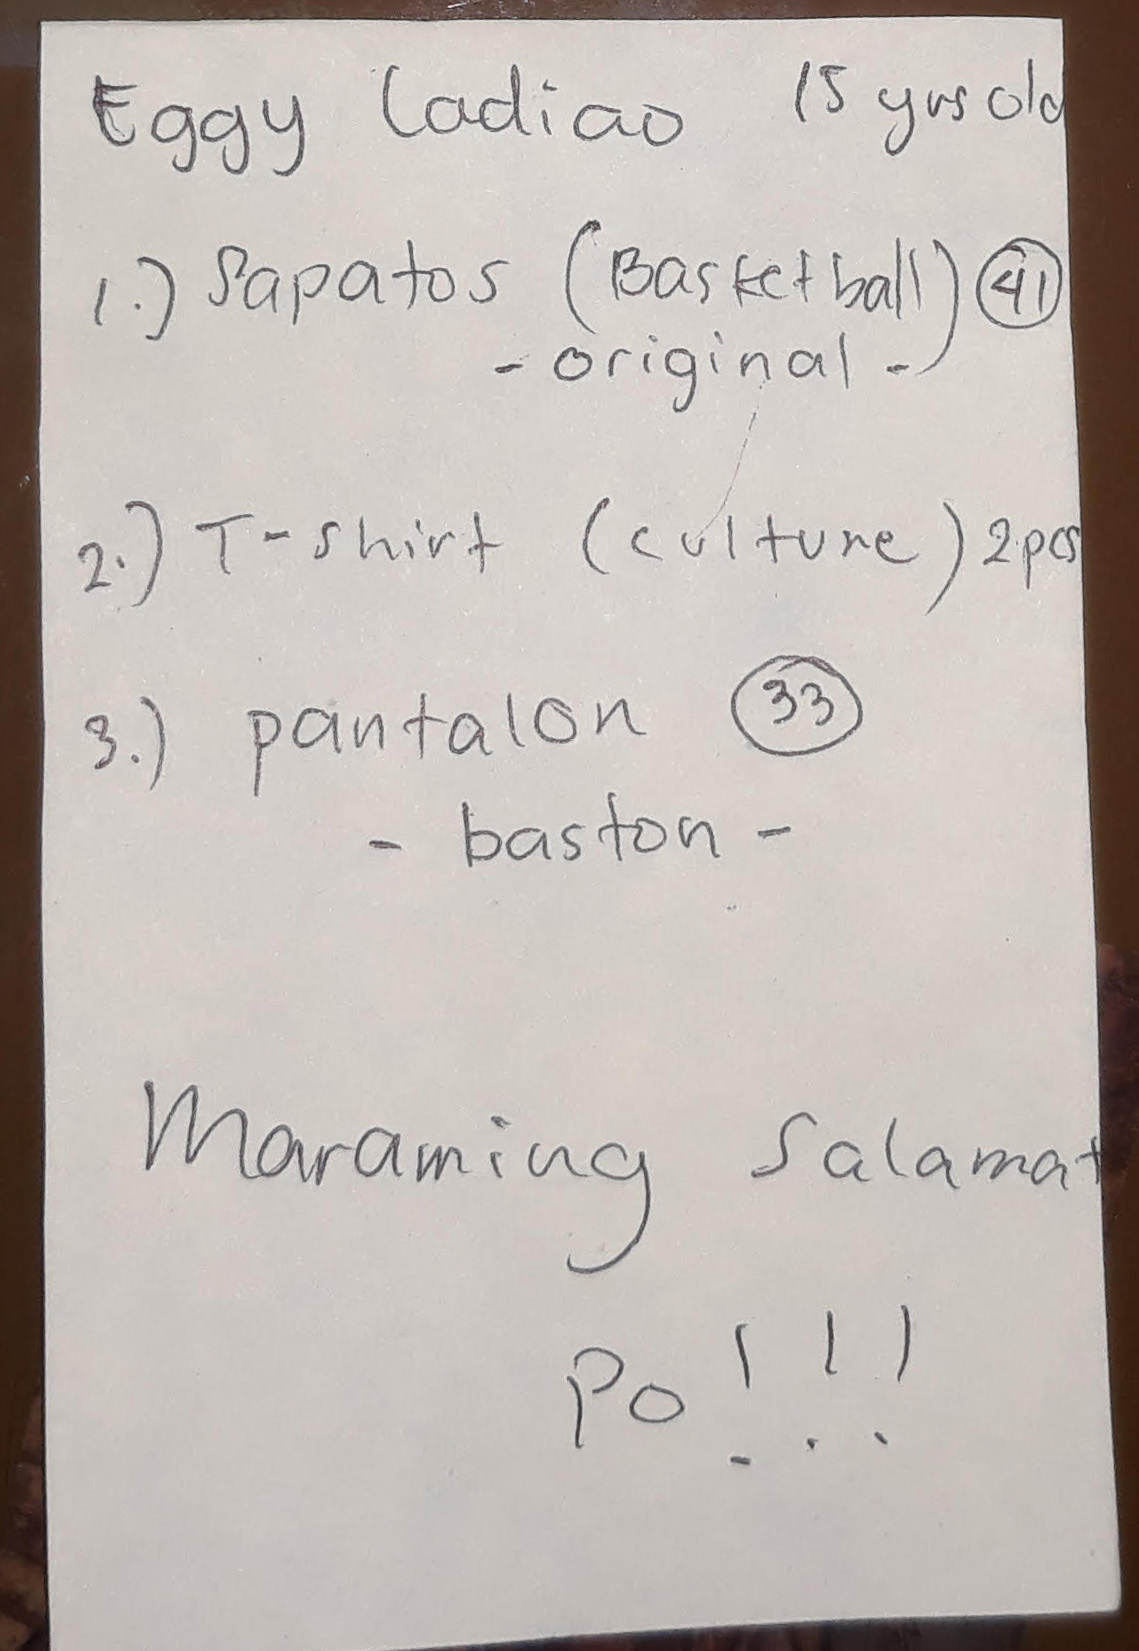 Eggy Cadiao 15 yrs old
1.) Sapatos (Basketball) 41
- original -
2.) T-shirt (culture) 2pcs
3.) pantalon 33
- baston -
Maraming Salamat
Po!!!